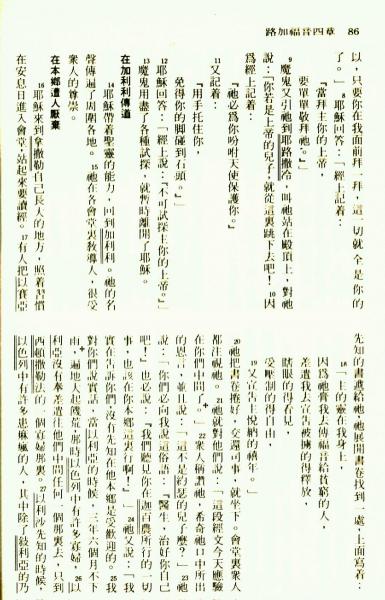 路加福音四章 86
以，只要你在我面前拜一拜，這一切就全是你的
了。」8耶穌回答：「經上記着：
『當拜主你的上帝，
要單單敬拜祂。』」
9魔鬼又引祂到耶路撒冷，叫祂站在殿頂上，對祂
說：「你若是上帝的兒子，就從這裏跳下去吧！10因
爲經上記着：
『祂必爲你吩咐天使保護你。』
11又記着：
『用手托住你，
免得你的脚碰到石頭。』」
12耶穌回答：「經上說：『不可試探主你的上帝。』」
13魔鬼用盡了各種試探，就暫時離開了耶穌。
在加利利傳道
14耶穌帶着聖靈的能力，回到加利利。祂的名
聲傳遍了周圍各地。15祂在各會堂裏教導人，很受
衆人的尊崇。
在本鄉遭人厭棄
16耶穌來到拿撒勒自己長大的地方，照着習慣
在安息日進入會堂，站起來要讀經。17有人把以賽亞
先知的書遞給祂，祂展開書卷找到一處，上面寫着：
18「主的靈在我身上，
因爲祂膏我去傳福音給貧窮的人，
差遣我去宣告被擄的得釋放，
瞎眼的得看見，
受壓制的得自由，
19又宣告上主悅納的禧年。」
20祂把書卷捲好，交還司事，就坐下。會堂裏衆人
都注視祂。21祂就對他們說：「這段經文今天應驗
在你們中間了。」22衆人稱讚祂，希奇祂口中所出
的恩言，並且說：「這不是約瑟的兒子麼？」23祂
說：「你們必向我說這俗語：『醫生，治好你自己
吧！』也必說：『我們聽見你在迦百農所行的一切
事，也該在你本鄉這裏行啊！』」24祂又說：「我
實在告訴你們，沒有先知在他本鄉是受歡迎的。25我
對你們說實話，當以利亞的時候，三年六個月不下
雨，遍地大起饑荒，那時以色列中有許多寡婦，26以
利亞沒有奉差遣往他們中間任何一個那裏去，只到
西頓撒勒法的一個寡婦那裏。27以利沙先知的時候，
以色列中有許多患痲瘋的人，其中除了敍利亞的乃